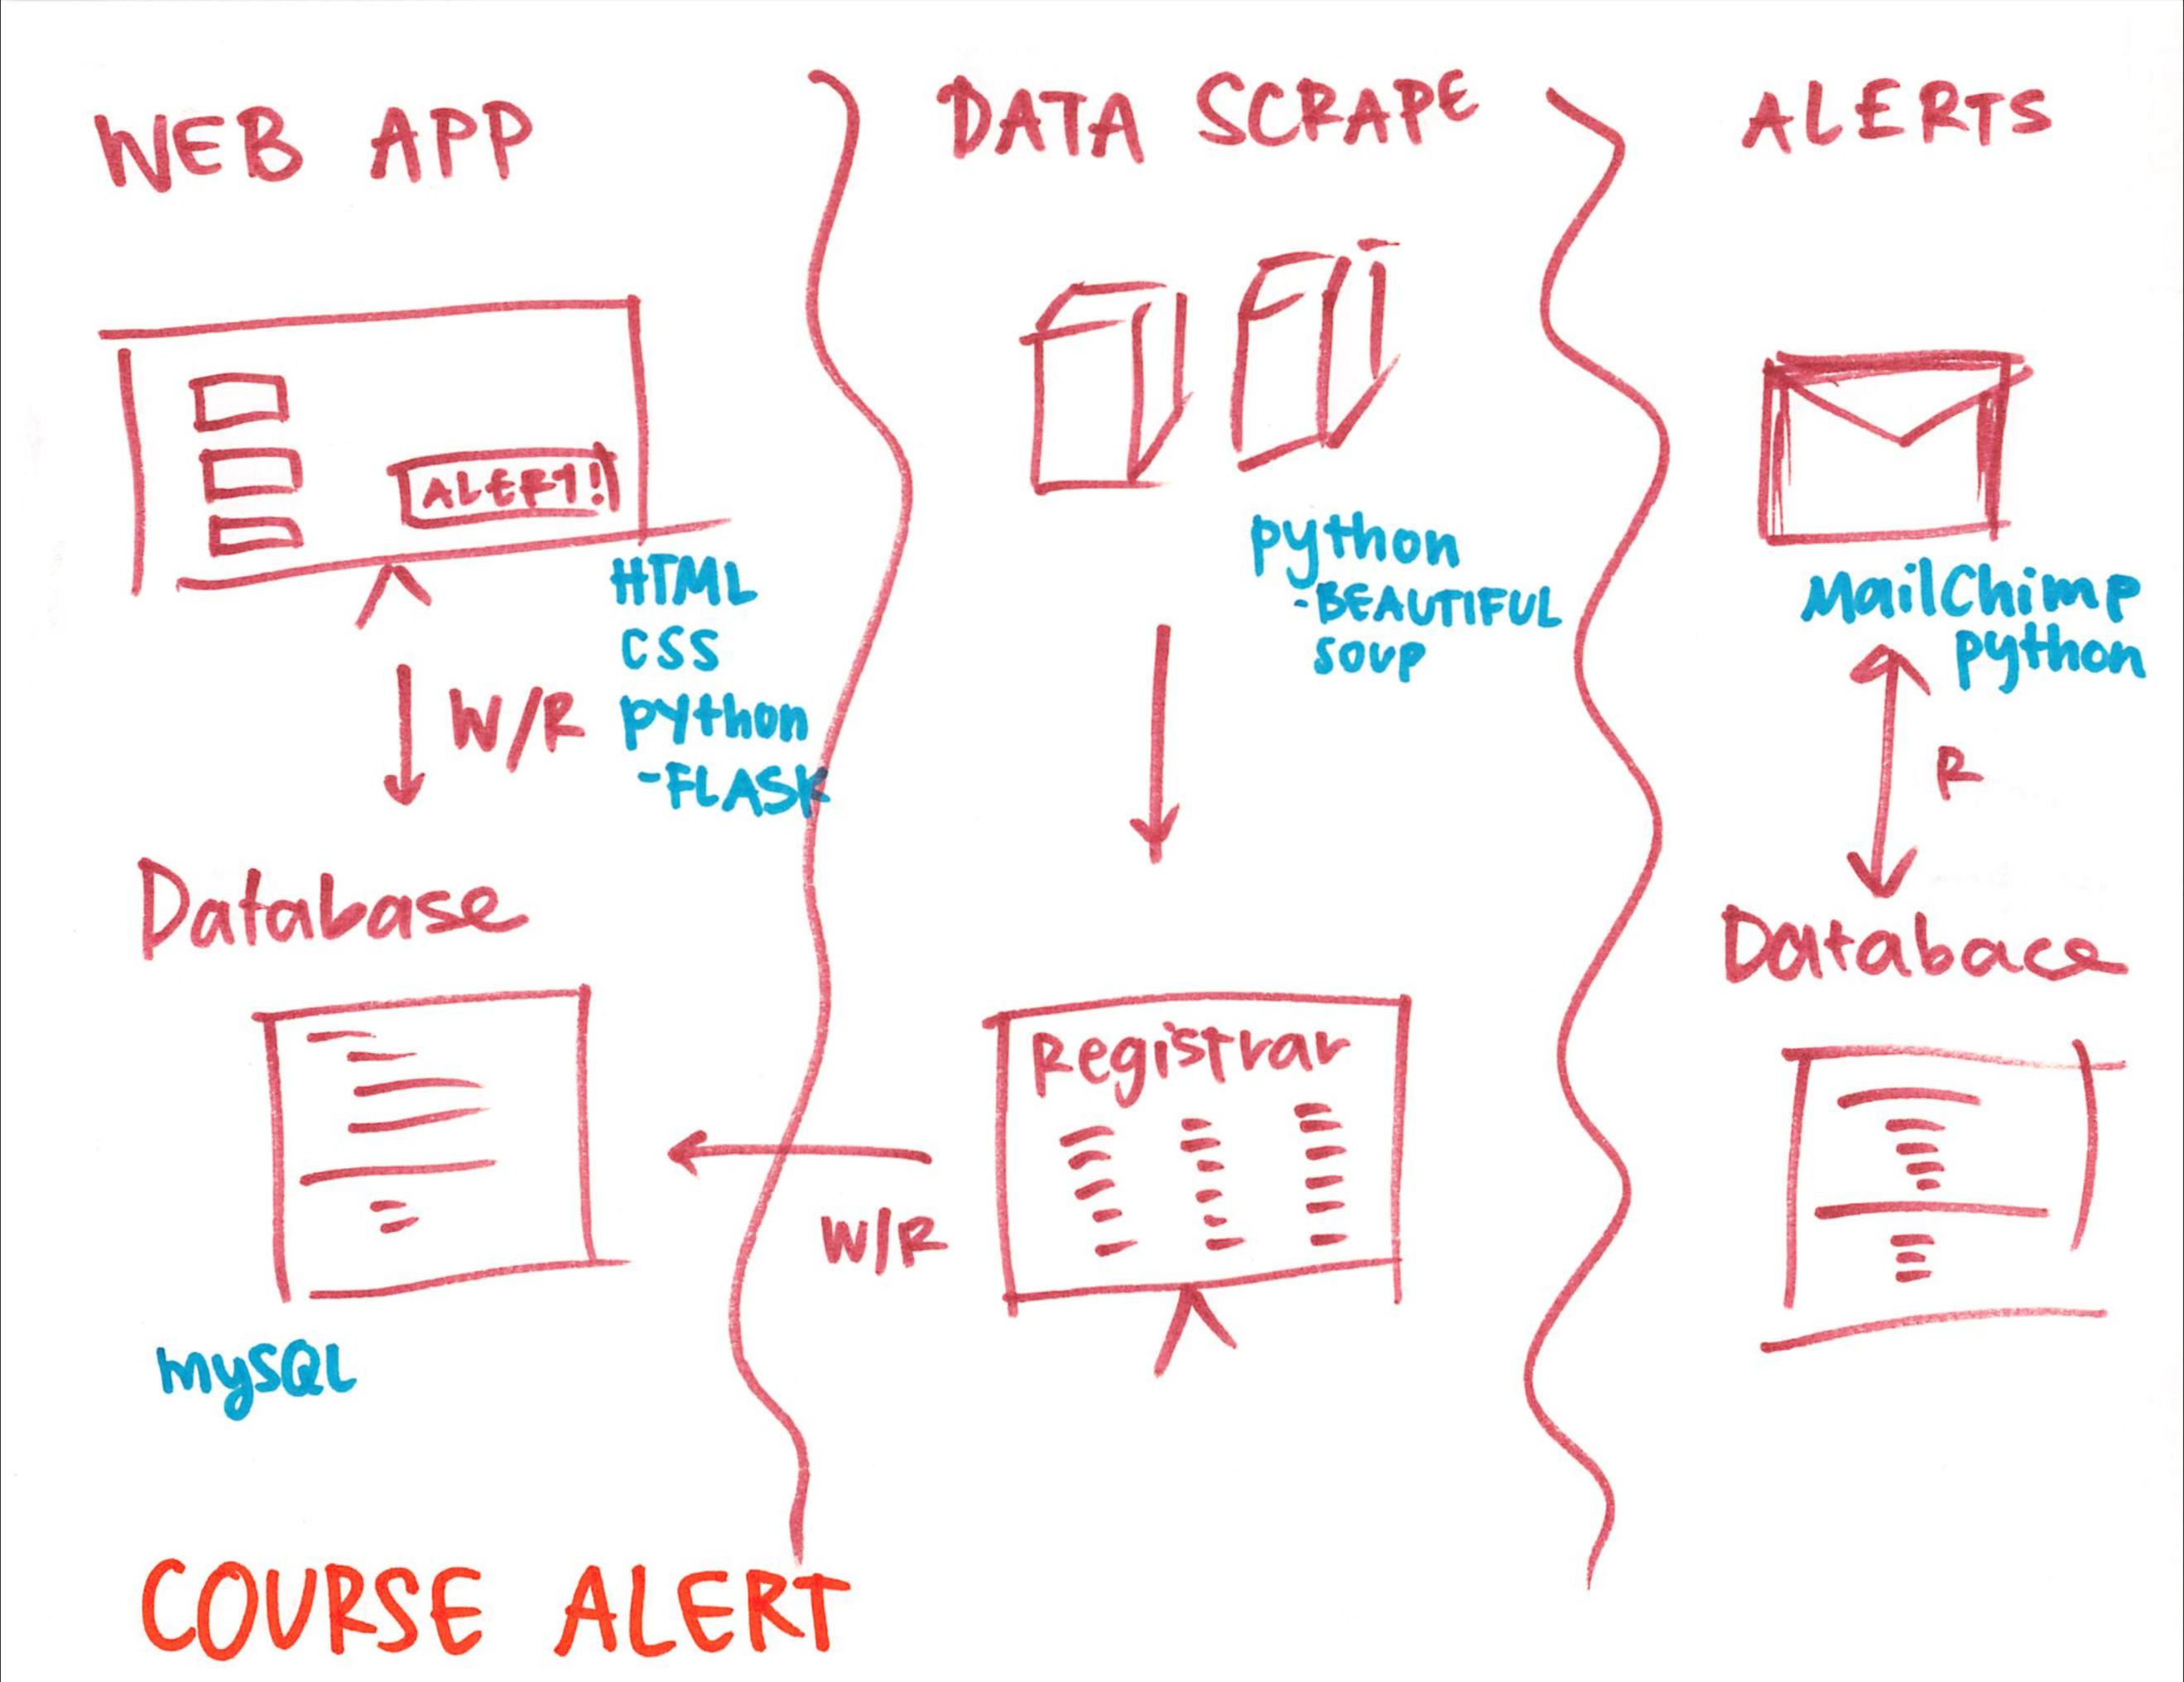 WEB APP
ALERT!
HTML
CSS
python
-FLASK
W/R
Database
mySQL
DATA SCRAPE
python
-BEAUTIFUL
SOUP
Registrar
W/R
ALERTS
MailChimp
python
R
Database
COURSE ALERT